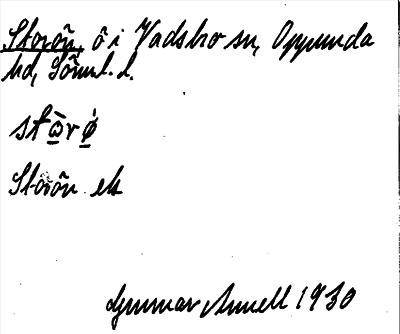 Storön, ö i Vadsbro sn, Oppunda
hd, Sörml. l.
stὼ̲rφ̲́
Storön ek
Gunnar Annell 1930